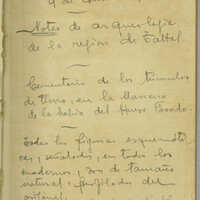 y de
Notas de arqueologia
de la region de Taltal.
Cementerio de los túmulos
de tierra, en la llanura
de la bahía del Hueso Parado.
Todas las figuras esquemáti
cas, señaladas, en todos los
cuadernos, son de tamaño
natural, perfiladas del
original.